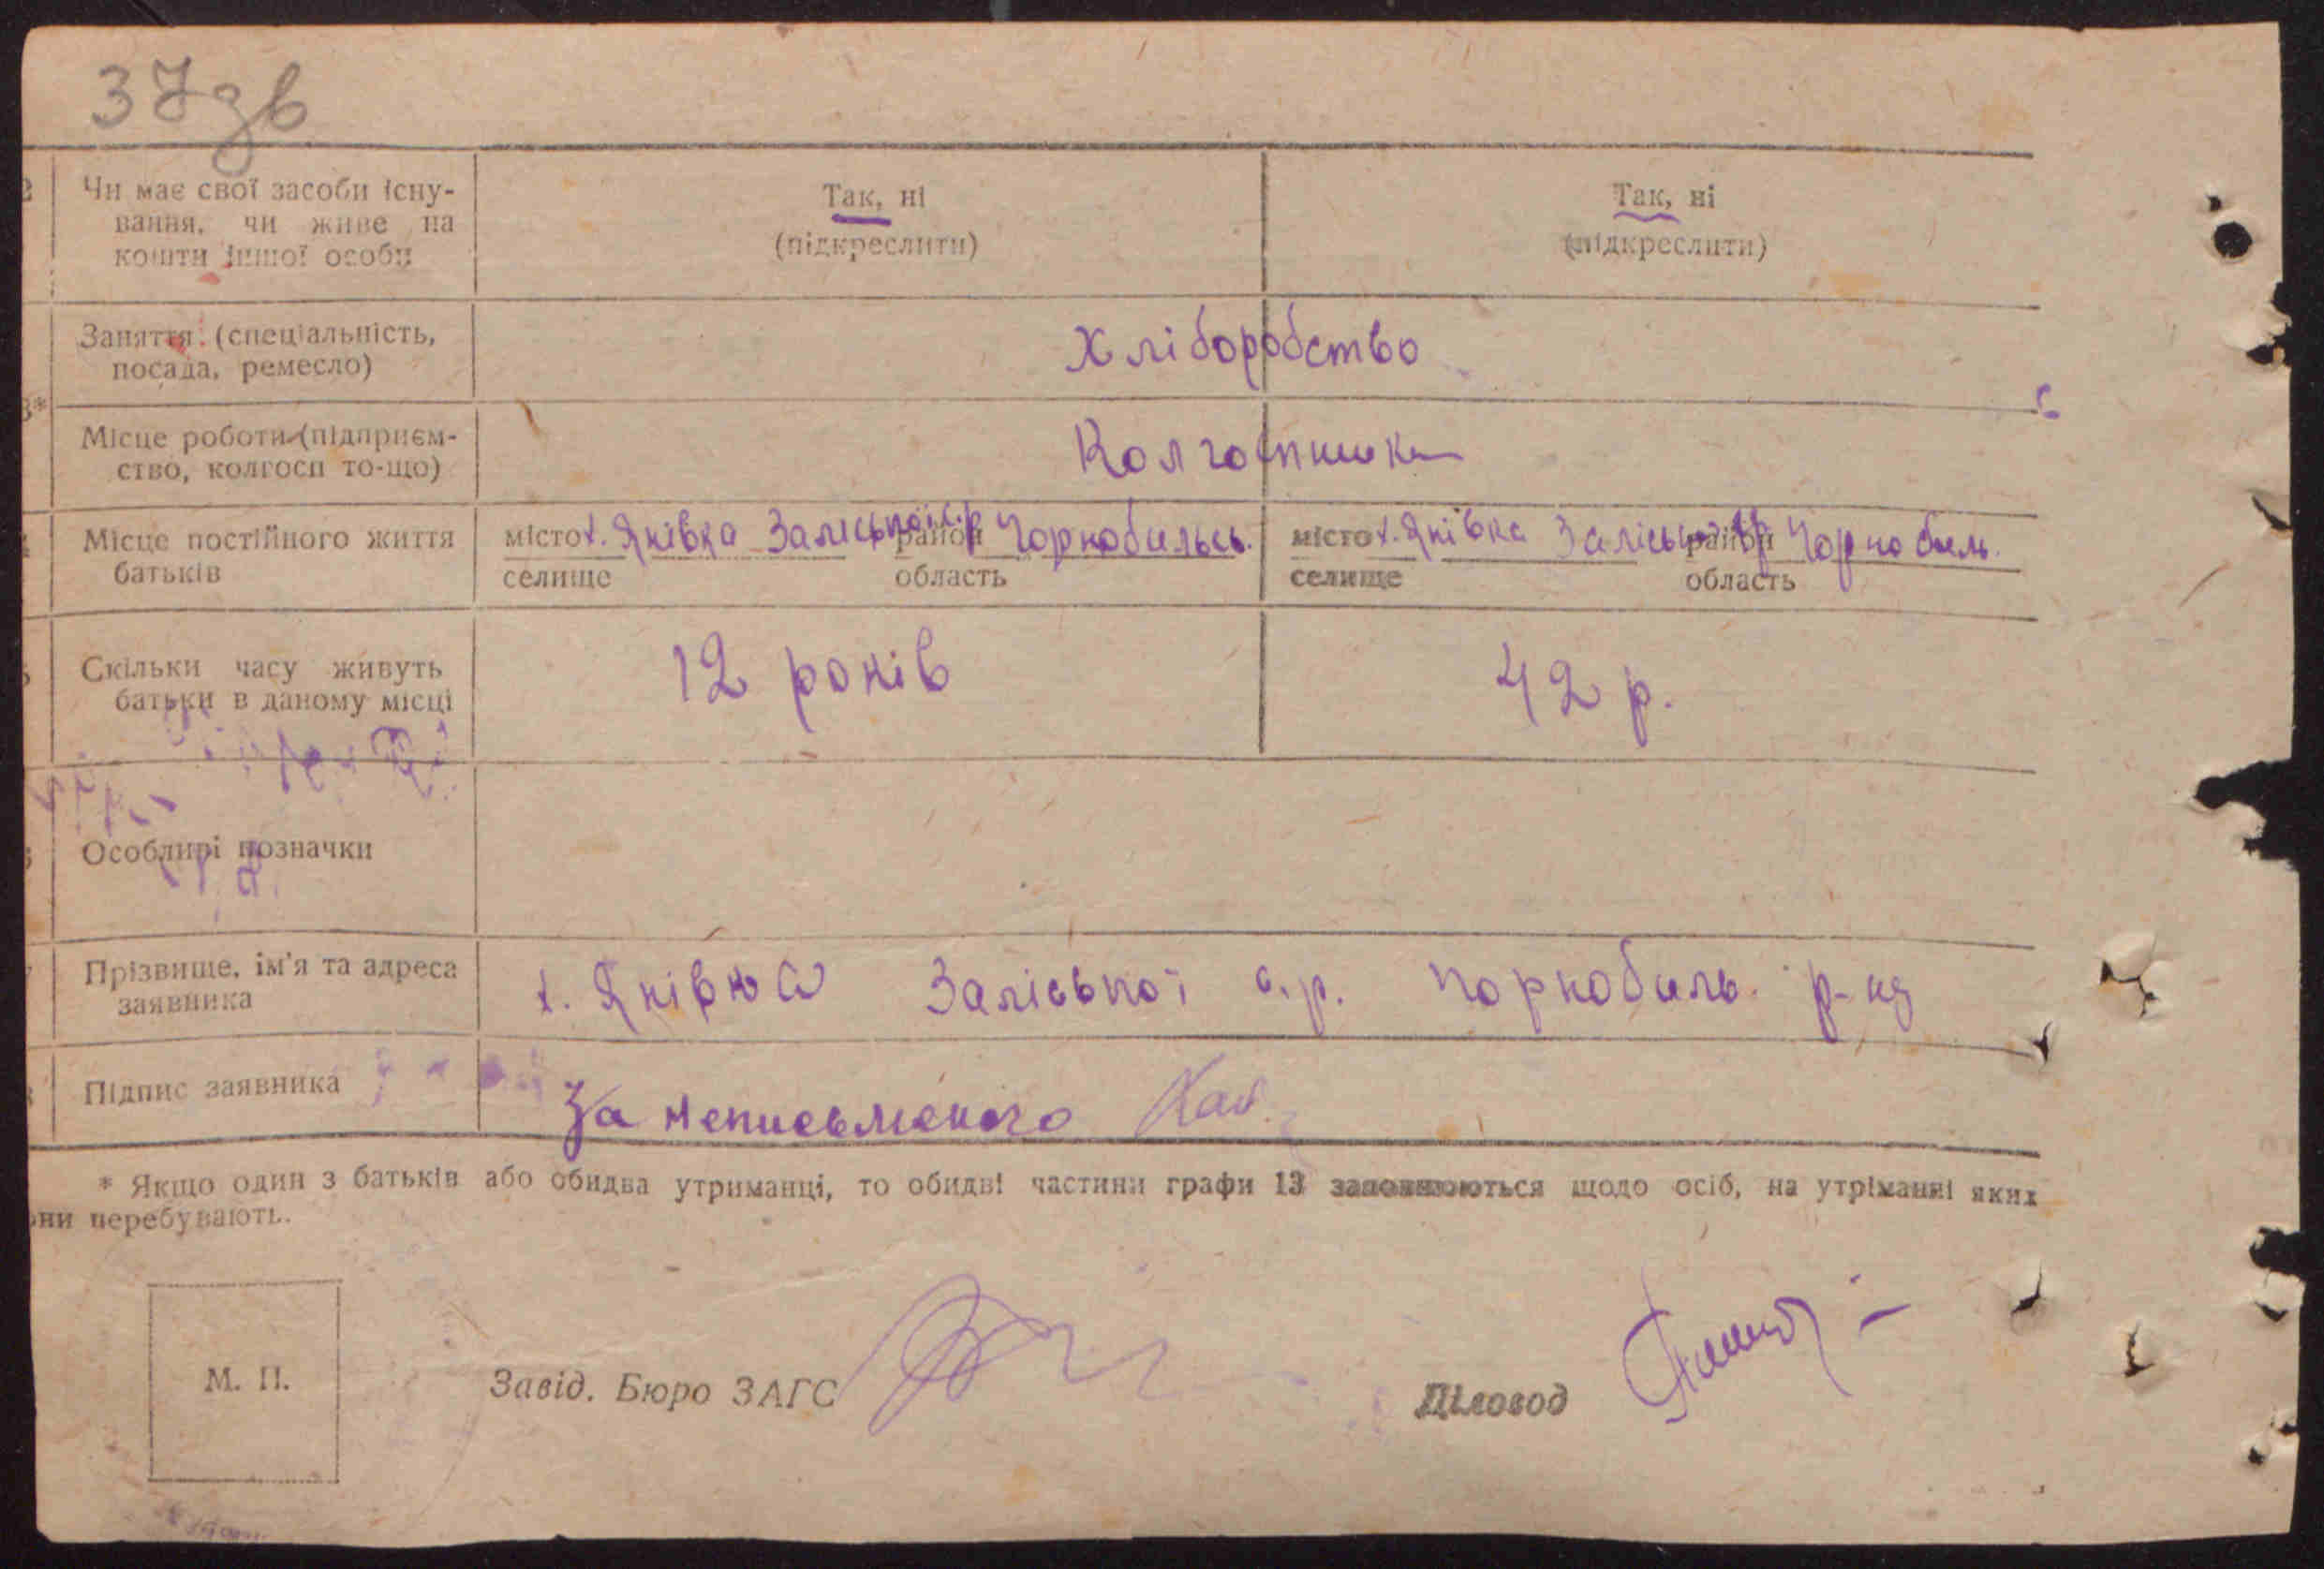 37зв
2 Чи має свої засоби існу-
вання, чи живе на
кошти іншої особи
Так, ні
(підкреслити)
Так, ні
(підкреслити)
3*
Заняття (спеціальність,
посада, ремесло)
Хліборобство
Місце роботи (підприєм-
ство, колгосп то-що)
Колгоспники
Місце постійного життя
батьків
місто х. Яківка Заліської с.р район Чорнобильсь.
селище область
місто х. Яківка Заліської с.р район Чорнобиль.
селище область
Скільки часу живуть
батьки в даному місці
12 років
42 р.
Особливі позначки
7 Прізвище, ім'я та адреса
заявника
х. Яківка Заліської с.р. Чорнобиль. р-ну
8 Підпис заявника
За неписьменого
* Якщо один з батьків або обидва утриманці, то обидві частини графи 13 заповнюються щодо осіб, на утріманні яких
они перебувають.
М. П.
Завід. Бюро ЗАГС
Діловод